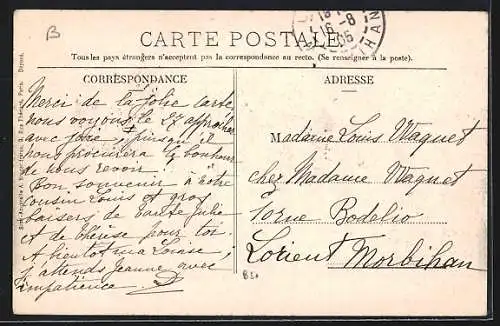 B
16-8
05
HAN
CARTE POSTALE
Tous les pays étrangers n'acceptent pas la correspondance au recto. (Se renseigner à la poste).
CORRESPONDANCE
Merci de la jolie carte,
nous voyons le 27 approcher
avec joie, puisqu'il
nous procurera le bonheur
de vous revoir.
Bon souvenir à notre
cousin Louis et gros
baisers de tante Julie
et de Thérèse pour toi.
A bientôt ma Louise ;
j'attends Jeanne avec
impatience.
ADRESSE
Madame Louis Waguet
chez Madame Waguet
10 rue Bodélio
Lorient Morbihan